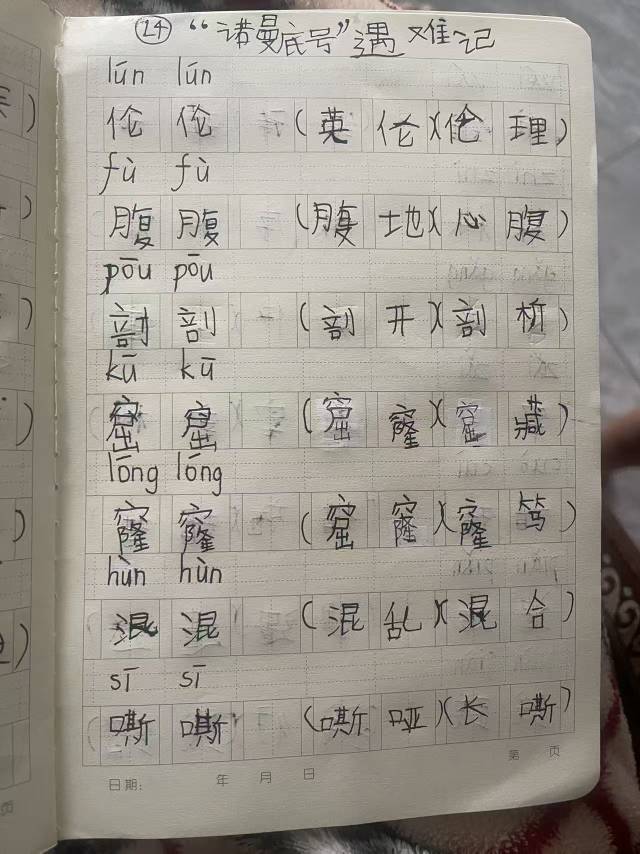 24 “诺曼底号”遇难记
lún lún
伦 伦 (英 伦)(伦 理)
fù fù
腹 腹 (腹 地)(心 腹)
pōu pōu
剖 剖 (剖 开)(剖 析)
kū kū
窟 窟 (窟 窿)(窟 藏)
lóng lóng
窿 窿 (窟 窿)(窿 笃)
hùn hùn
混 混 (混 乱)(混 合)
sī sī
嘶 嘶 (嘶 哑)(长 嘶)
日期: 年 月 日 第 页